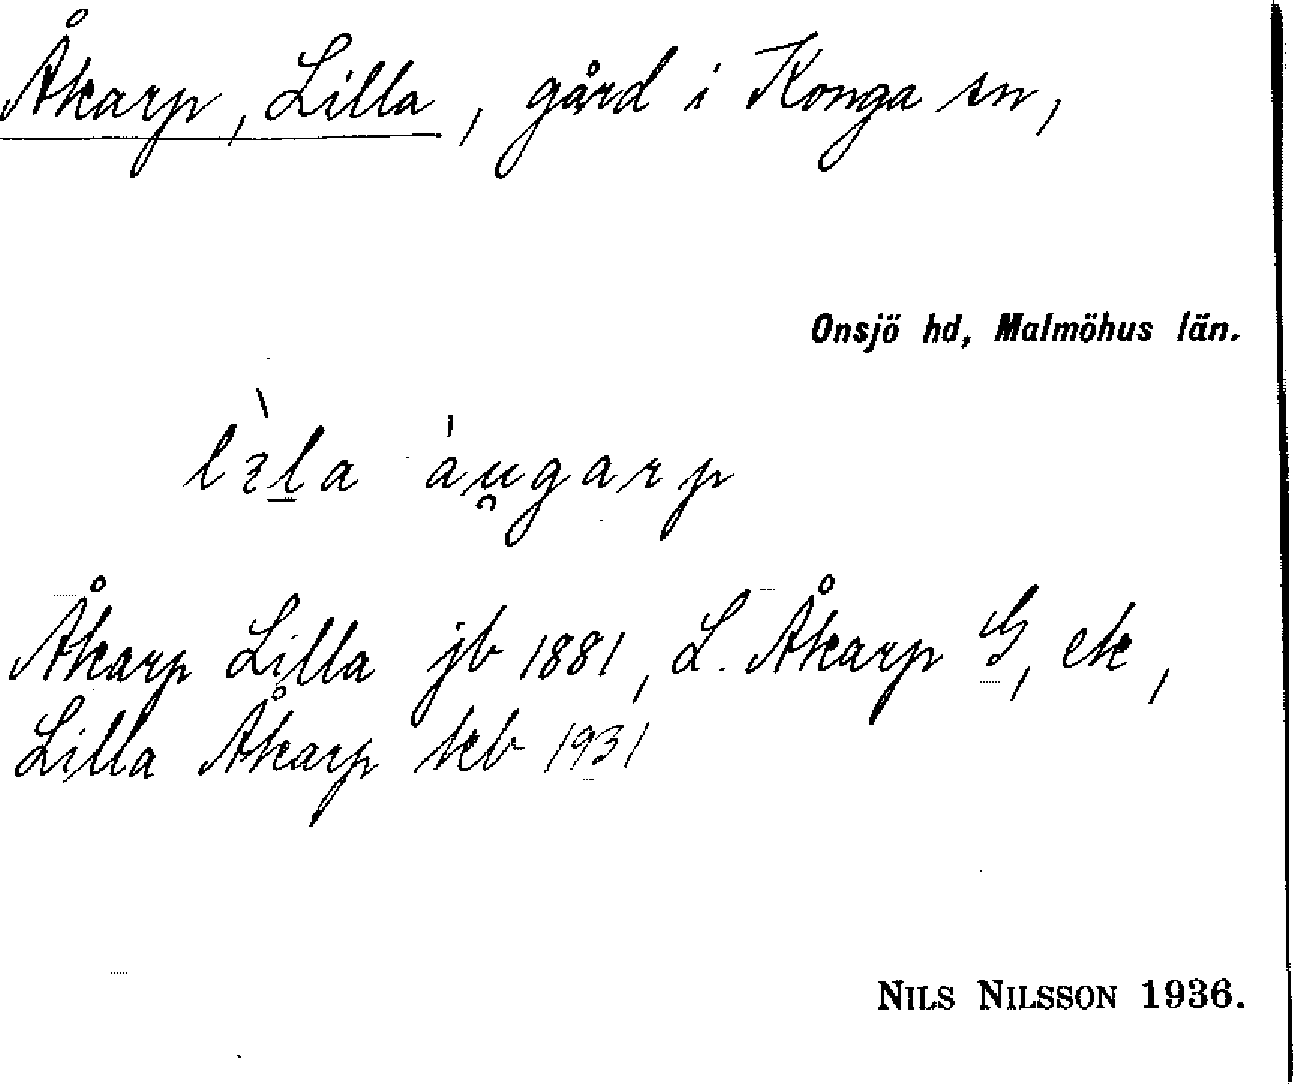 Åkarp, Lilla, gård i Konga sn,
Onsjö hd, Malmöhus län.
lɪ̀l̠a áu̯garp
Åkarp Lilla jb 1881, L. Åkarp G, ek,
Lilla Åkarp kb 1931
NILS NILSSON 1936.